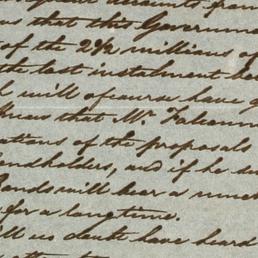 accounts from
us that this Governm
of the 2½ millions o
the last instalment ha
will of course have g
Knows that Mr. Falconn
ations of the proposals
endholders, and if he su
Bonds will bear a much
for a long time.
ll no doubt have heard